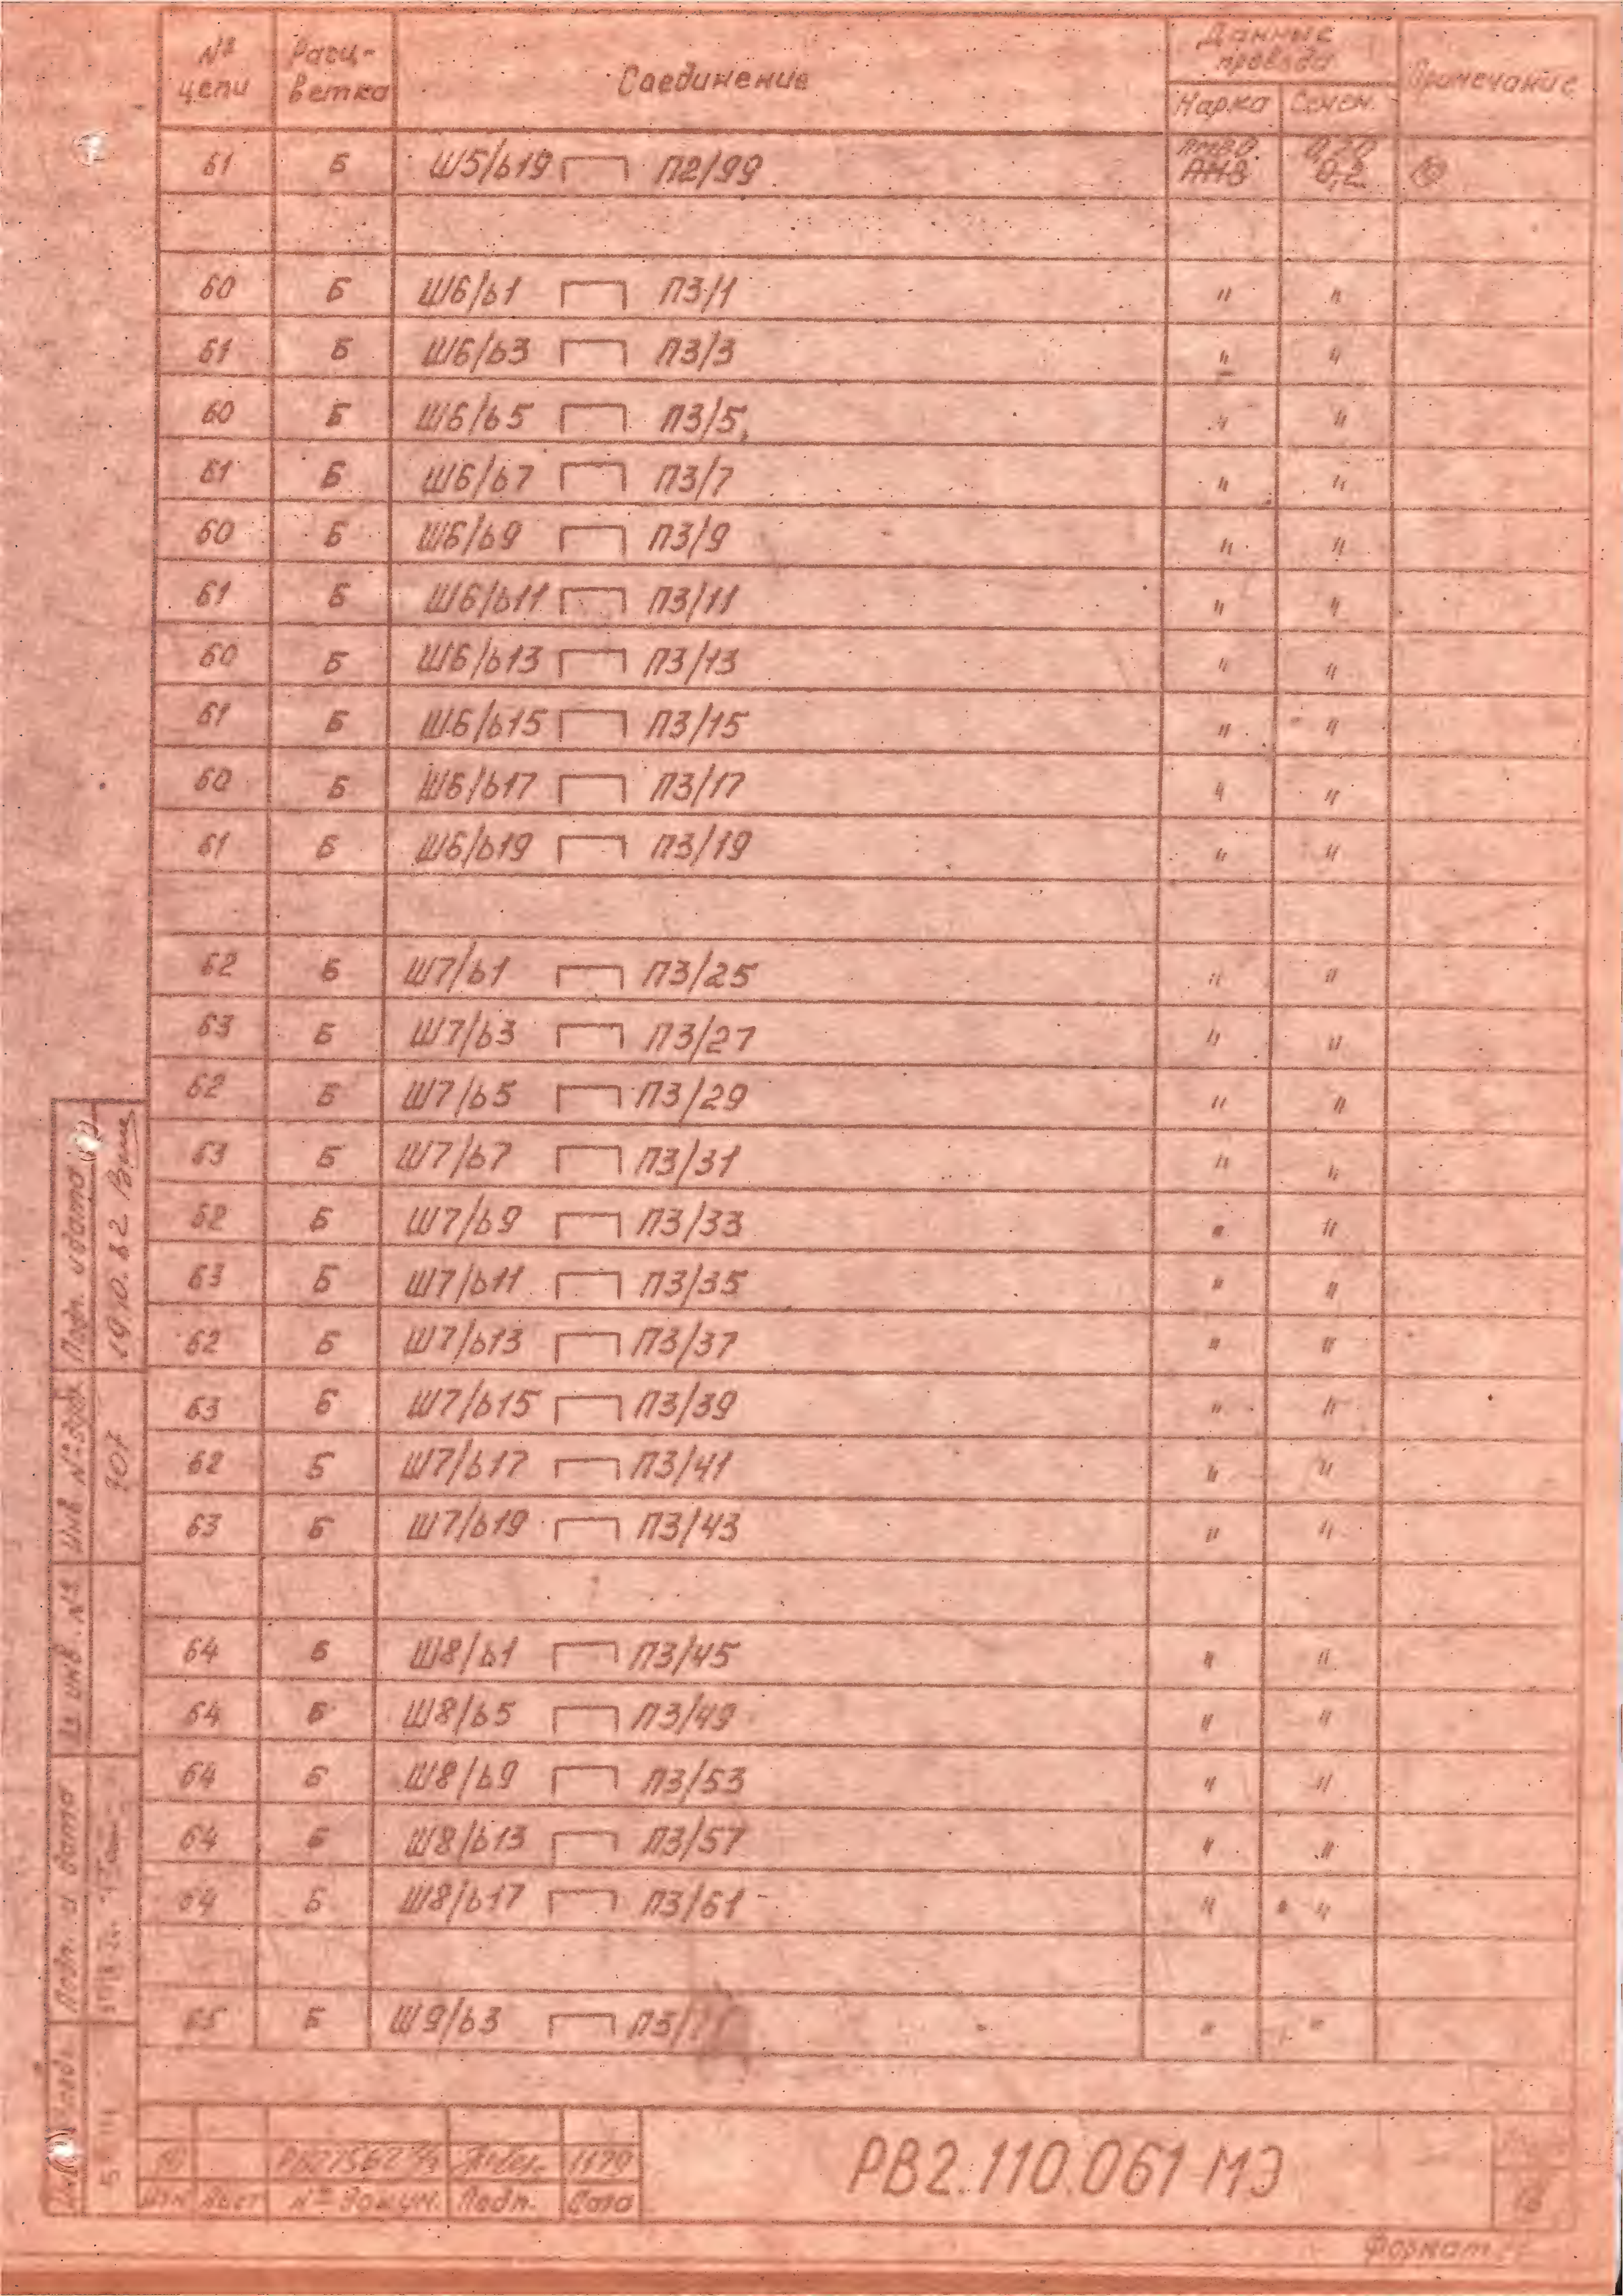 № цепи Расц-ветка Соединение Данные провода Примечание
Марка Сечен.
61 Б Ш5/b19 П2/99 ПМВО 0,20
ПМВ 0,2 10
60 Б Ш6/b1 П3/1 " "
61 Б Ш6/b3 П3/3 " "
60 Б Ш6/b5 П3/5 " "
61 Б Ш6/b7 П3/7 " "
60 Б Ш6/b9 П3/9 " "
61 Б Ш6/b11 П3/11 " "
60 Б Ш6/b13 П3/13 " "
61 Б Ш6/b15 П3/15 " "
60 Б Ш6/b17 П3/17 " "
61 Б Ш6/b19 П3/19 " "
62 Б Ш7/b1 П3/25 " "
63 Б Ш7/b3 П3/27 " "
62 Б Ш7/b5 П3/29 " "
63 Б Ш7/b7 П3/31 " "
62 Б Ш7/b9 П3/33 " "
63 Б Ш7/b11 П3/35 " "
62 Б Ш7/b13 П3/37 " "
63 Б Ш7/b15 П3/39 " "
62 Б Ш7/b17 П3/41 " "
63 Б Ш7/b19 П3/43 " "
64 Б Ш8/b1 П3/45 " "
64 Б Ш8/b5 П3/49 " "
64 Б Ш8/b9 П3/53 " "
64 Б Ш8/b13 П3/57 " "
64 Б Ш8/b17 П3/61 " "
65 Б Ш9/b3 П3/ " "
Подп. и дата
Инв. № дубл.
инв. №
Подп. и дата
10 1179
Изм Лист № докум. Подп. Дата
РВ2.110.061 МЭ
Формат